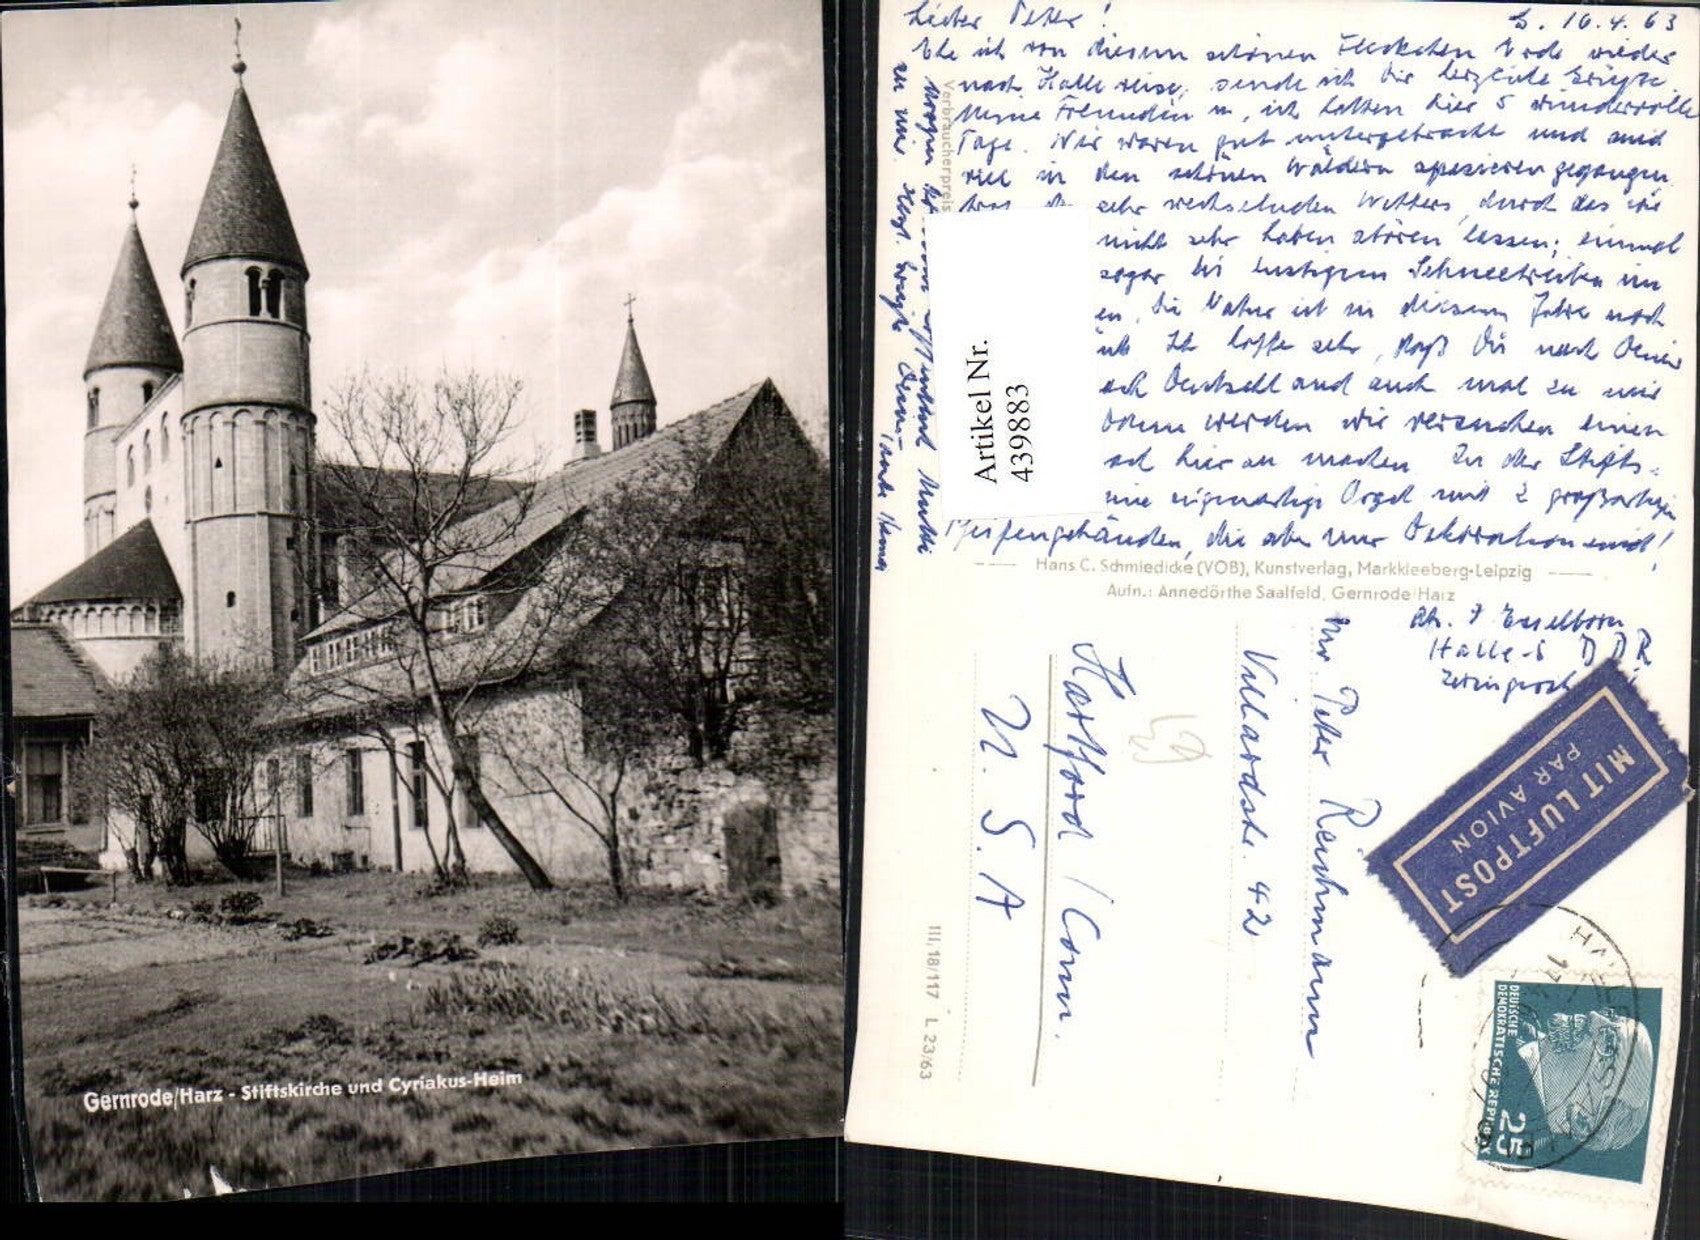 Gernrode/Harz - Stiftskirche und Cyriakus-Heim
Lieber Peter!
10.4.63
Ehe ich von diesem schönen Fleckchen Erde wieder
nach Halle reise, sende ich Dir herzliche Grüße.
Meine Freundin u. ich hatten hier 5 wundervolle
Tage. Wir waren gut untergebracht und sind
viel in den schönen Wäldern spazieren gegangen
trotz des sehr wechselnden Wetters, durch das wir
nicht sehr haben stören lassen; einmal
sogar bei lustigem Schneetreiben im
en. Die Natur ist in diesem Jahre noch
ück. Ich hoffe sehr, daß Du nach Deiner
ach Deutschland auch mal zu mir
Dann werden wir versuchen einen
hierau machen. In der Stifts-
eine eigenartige Orgel mit 2 großartigen
Pfeifengehäusen, die aber nur Dekoration sind!
Morgen
Mutti
zu mir. Herzl. Grüße Deine Tante
Verbraucherpreis
Artikel Nr.
439883
Hans C. Schmiedicke (VOB), Kunstverlag, Markkleeberg-Leipzig
Aufn.: Annedörthe Saalfeld, Gernrode/Harz
Abs. Esselborn
Halle-S DDR
Mr. Peter Reichmann
Villardstr. 42
Hartford / Conn.
U. S. A
59
III/18/117 L 23/63
MIT LUFTPOST
PAR AVION
HALLE
DEUTSCHE
DEMOKRATISCHE REPUBLIK
25